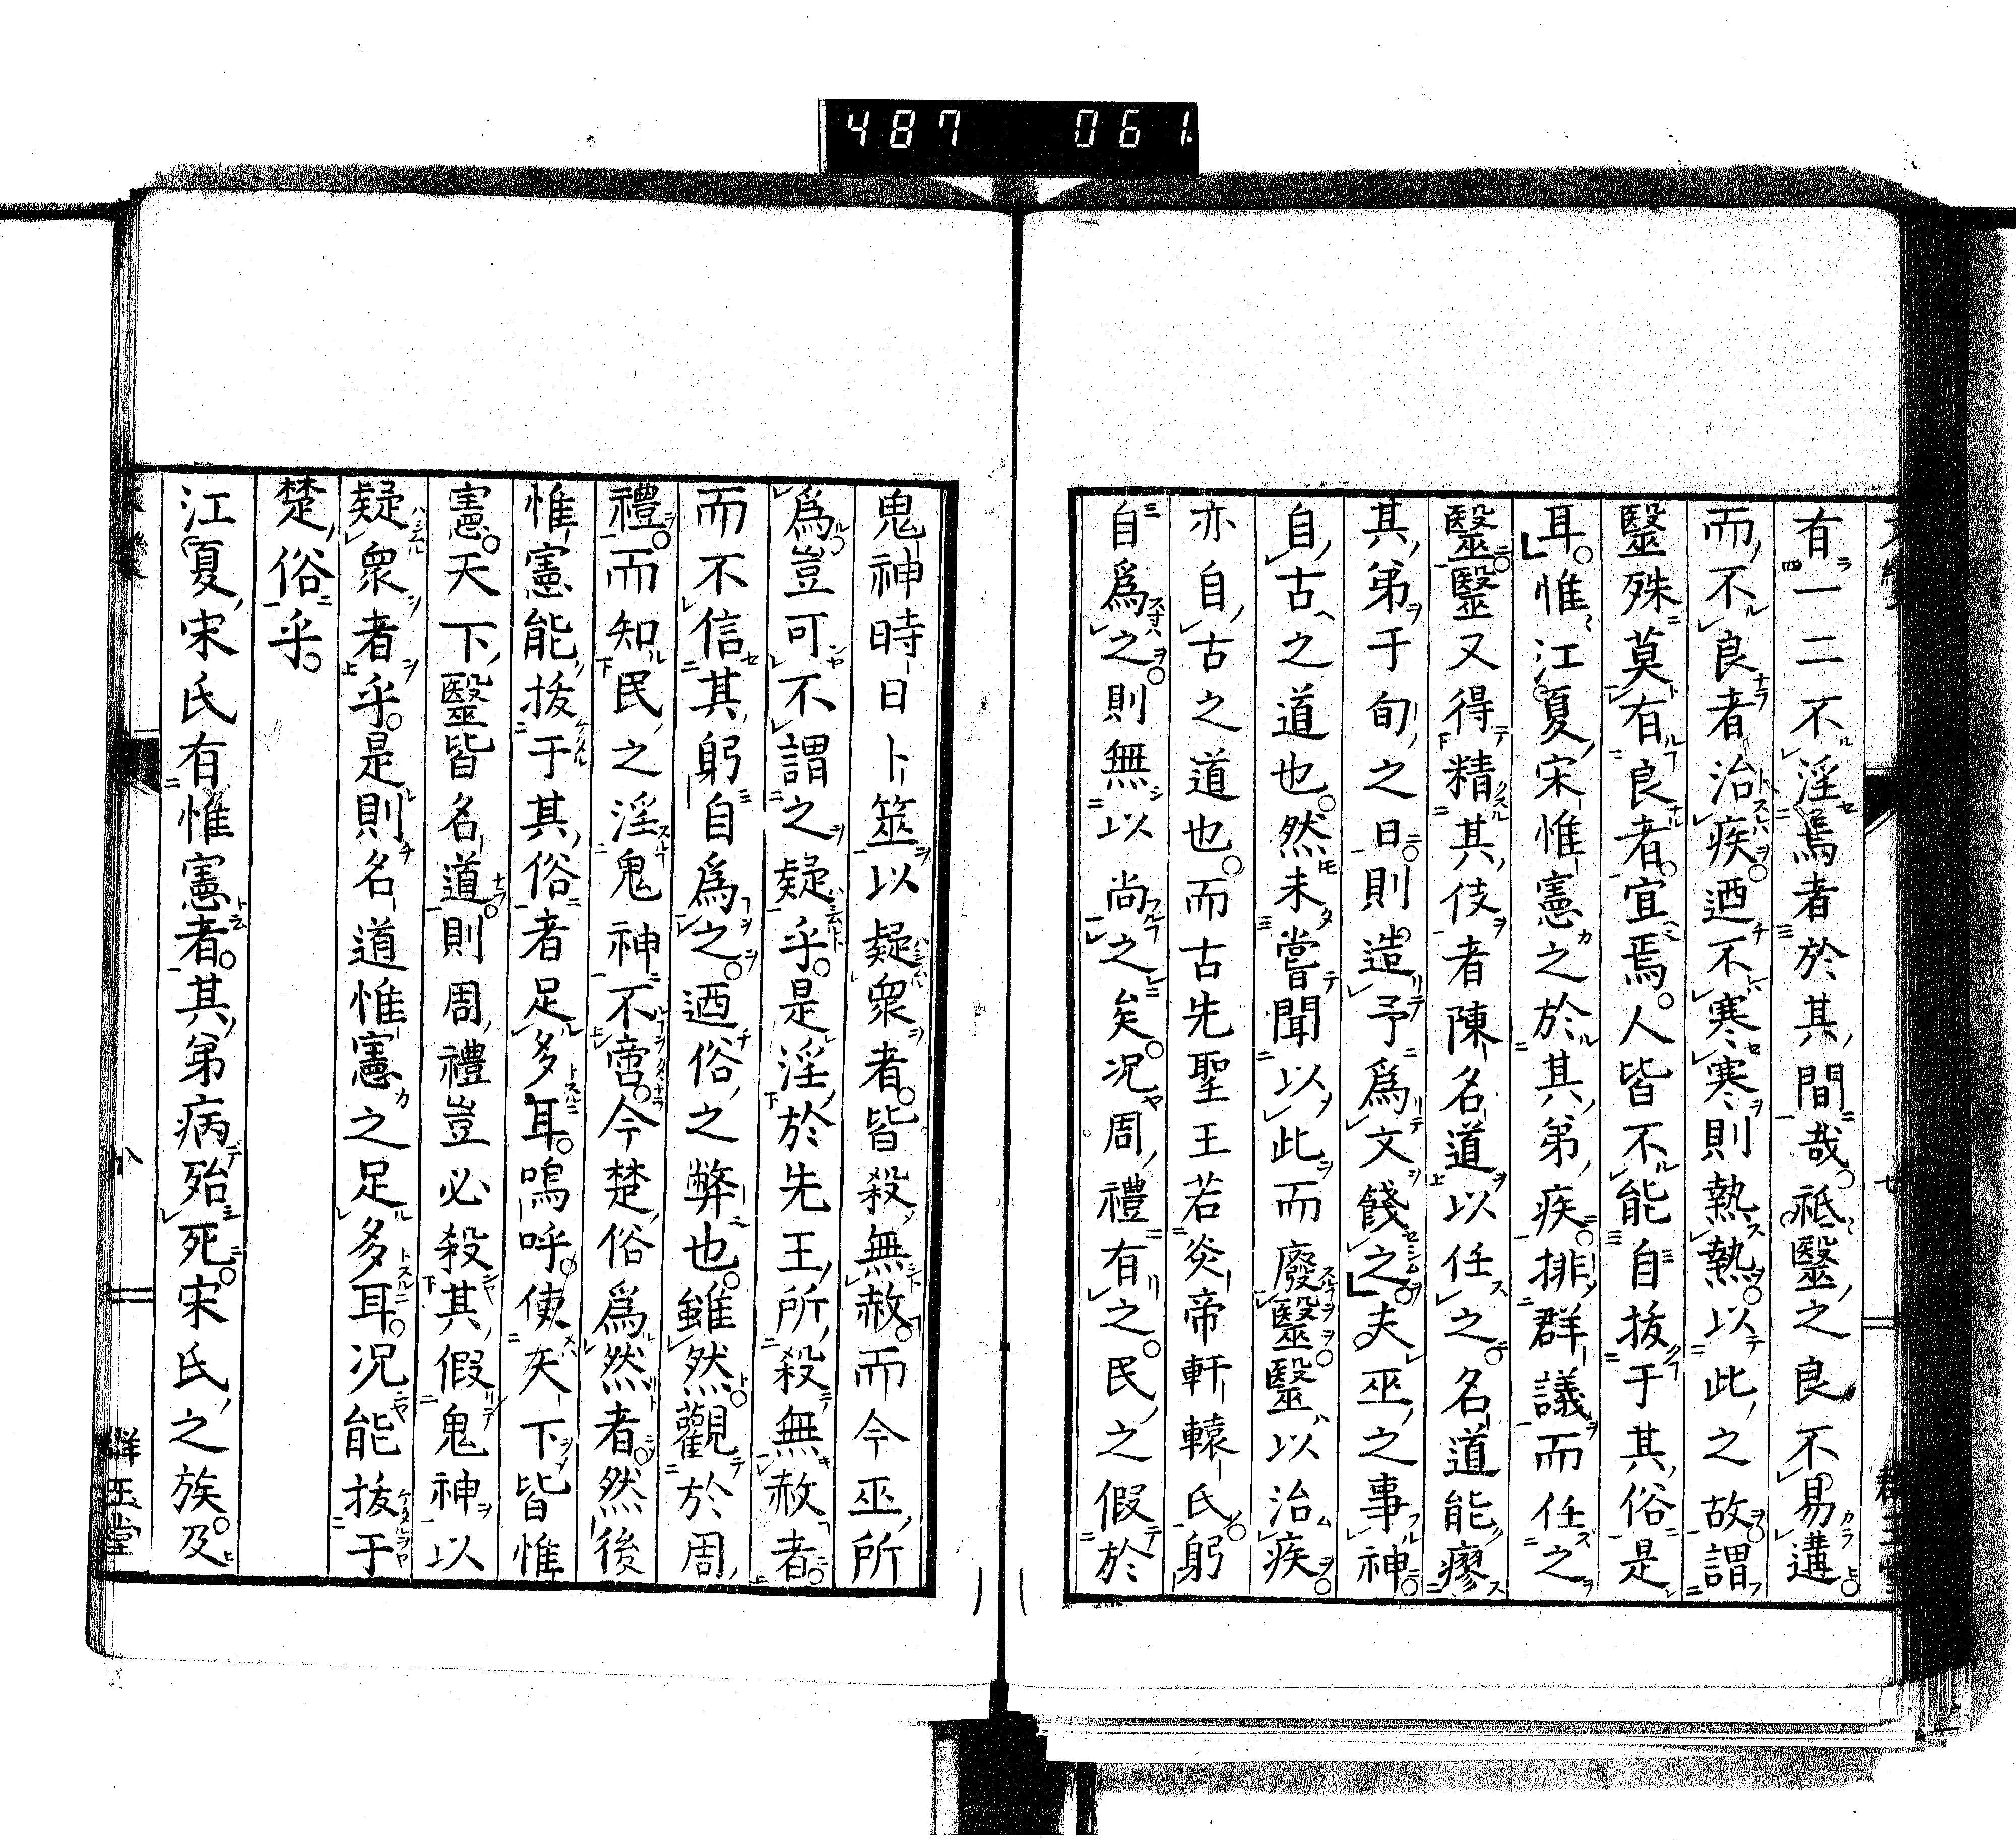 487 061
有一二不淫焉者於其間哉。祗醫之良不易遘
而不良者治疾。迺不寒寒則熱熱。以此之故謂
醫殊莫有良者。宜焉。人皆不能自拔于其俗是
耳。惟江夏宋惟憲之於其弟疾。排群議而任之
醫。醫又得精其伎者陳名道以任之。名道能瘳
其弟于旬之日。則造予爲文餞之。夫巫之事神
自古之道也。然未嘗聞以此而廢醫。醫以治疾。
亦自古之道也。而古先聖王若炎帝軒轅氏躬
自爲之。則無以尚之矣。况周禮有之。民之假於
鬼神時日卜筮以疑衆者。皆殺無赦。而今巫所
爲。豈可不謂之疑乎。是淫於先王所殺無赦者。
而不信其躬自爲之。迺俗之弊也。雖然。觀於周
禮。而知民之淫鬼神不啻。今楚俗爲然者。然後
惟憲能拔于其俗者足多耳。嗚呼。使天下皆惟
憲。天下醫皆名道。則周禮豈必殺其假鬼神以
疑衆者乎。是則名道惟憲之足多耳。况能拔于
楚俗乎。
江夏宋氏有惟憲者。其弟病殆死。宋氏之族。及
群玉堂